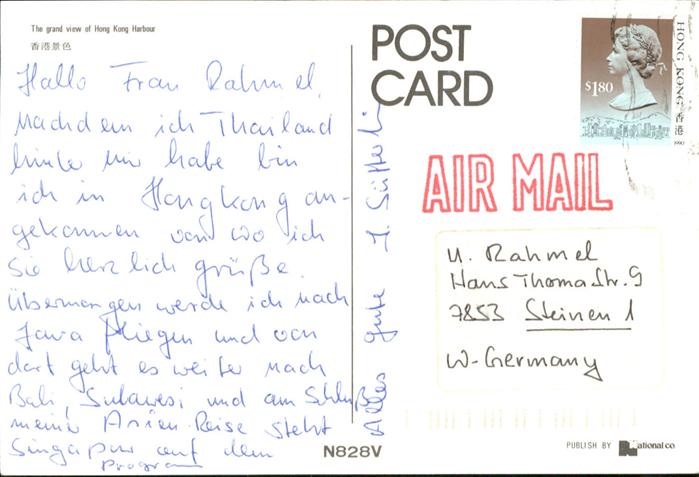 The grand view of Hong Kong Harbour
香港景色
Hallo Frau Rahmel,
nachdem ich Thailand
hinter mir habe bin
ich in Hongkong an-
gekommen von wo ich
Sie herzlich grüße.
Übermorgen werde ich nach
Java fliegen und von
dort geht es weiter nach
Bali, Sulawesi und am Schluß
meiner Asien-Reise steht
Singapur auf dem
Program
Alles Gute I.
N828V
POST
CARD
AIR MAIL
$1.80
HONG KONG 香港
1990
U. Rahmel
Hans Thoma Str. 9
7853 Steinen 1
W-Germany
PUBLISH BY National co.